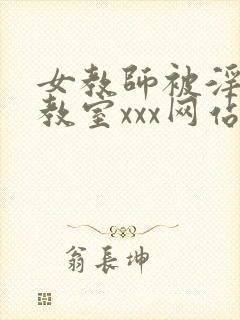 女教師被淫
教室xxx网佔
翁長坤